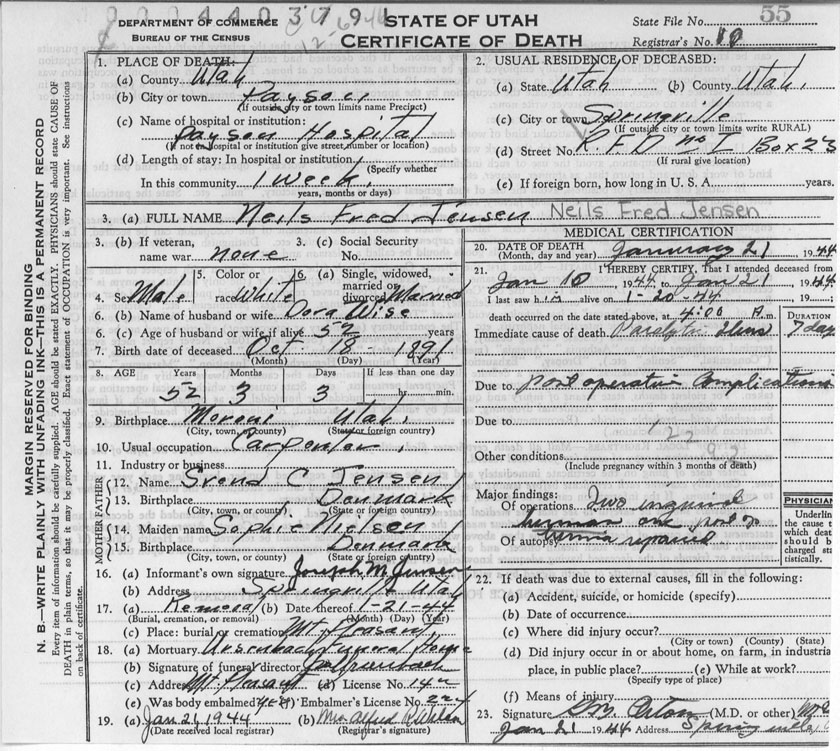 DEPARTMENT OF COMMERCE
BUREAU OF THE CENSUS
STATE OF UTAH
CERTIFICATE OF DEATH
State File No. 55
Registrar's No. 10
MARGIN RESERVED FOR BINDING
N. B.—WRITE PLAINLY WITH UNFADING INK—THIS IS A PERMANENT RECORD
Every item of information should be carefully supplied. AGE should be stated EXACTLY. PHYSICIANS should state CAUSE OF
DEATH in plain terms, so that it may be properly classified. Exact statement of OCCUPATION is very important. See instructions
on back of certificate.
1. PLACE OF DEATH:
(a) County Utah
(b) City or town Payson
(If outside city or town limits name Precinct)
(c) Name of hospital or institution:
Payson Hospital
(If not in hospital or institution give street number or location)
(d) Length of stay: In hospital or institution
(Specify whether
In this community 1 Week
years, months or days)
2. USUAL RESIDENCE OF DECEASED:
(a) State Utah (b) County Utah
(c) City or town Springville
(If outside city or town limits write RURAL)
(d) Street No. R. F. D. No 1 Box
(If rural give location)
(e) If foreign born, how long in U. S. A. years.
3. (a) FULL NAME Neils Fred Jensen Neils Fred Jensen
3. (b) If veteran, name war none
3. (c) Social Security No.
4. Sex Male
5. Color or race White
6. (a) Single, widowed, married or divorced Married
6. (b) Name of husband or wife Dora Wise
6. (c) Age of husband or wife if alive 52 years
7. Birth date of deceased Oct 18 - 1891
(Month) (Day) (Year)
8. AGE Years Months Days If less than one day
52 3 3 hr. min.
9. Birthplace Moroni Utah
(City, town, or county) (State or foreign country)
10. Usual occupation Carpenter
11. Industry or business
MOTHER FATHER
12. Name Svend C Jensen
13. Birthplace Denmark
(City, town, or county) (State or foreign country)
14. Maiden name Sophie Nielsen
15. Birthplace Denmark
(City, town, or county) (State or foreign country)
16. (a) Informant's own signature Joseph M. Jensen
(b) Address Springville Utah
17. (a) Removal (b) Date thereof 1-21-44
(Burial, cremation, or removal) (Month) (Day) (Year)
(c) Place: burial or cremation Mt Pleasant
18. (a) Mortuary Ursenbach Funeral Home
(b) Signature of funeral director
(c) Address Mt. Pleasant (d) License No.
(e) Was body embalmed? yes Embalmer's License No.
19. (a) Jan 21, 1944 (b) Mrs Alfred
(Date received local registrar) (Registrar's signature)
MEDICAL CERTIFICATION
20. DATE OF DEATH
(Month, day and year) January 21, 1944
21. I HEREBY CERTIFY, That I attended deceased from
Jan 10, 1944 to Jan 21, 1944
I last saw him alive on 1-20-44
death occurred on the date stated above, at 4:00 A.m.
DURATION
Immediate cause of death Paralytic Ileus 7 days
Due to Post operative Complications
Due to
122
Other conditions
(Include pregnancy within 3 months of death)
Major findings:
Of operations Two inguinal
Of autopsy hernia repaired
PHYSICIAN
Underlin
the cause t
which deat
should b
charged sta
tistically.
22. If death was due to external causes, fill in the following:
(a) Accident, suicide, or homicide (specify)
(b) Date of occurrence
(c) Where did injury occur?
(City or town) (County) (State)
(d) Did injury occur in or about home, on farm, in industria
place, in public place? (e) While at work?
(Specify type of place)
(f) Means of injury
23. Signature Orton (M.D. or other)
Jan 21 1944 Address Springville